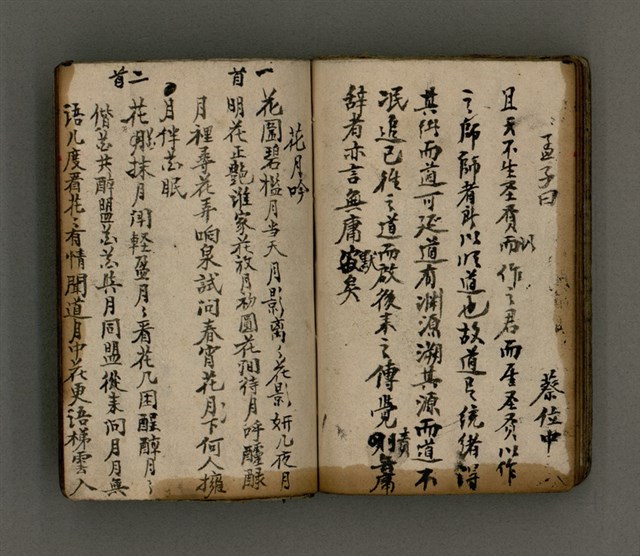 孟子曰
蔡位中
且天不生圣賢而以作之君而屋圣賢以作
之師師者所以順道也故道呈統緒得
其所而道可延道有渊源溯其源而道不
泯追已往之道而啟後来之傳覺則責庸
辞者亦言無庸默矣
花月吟
一首
花園碧檻月当天月影离々花影妍几夜月
明花正艷誰家花放月初圓花洞待月呼醽醁
月裡尋花弄响泉試问春宵花月下何人擁
月伴花眠
二首
花彩抹月闭輕盈月々看花几困醒醇月々
偕花共醉盟花花與月同盟從来问月月無
语几度看花々有情聞道月中花更语梯雲入